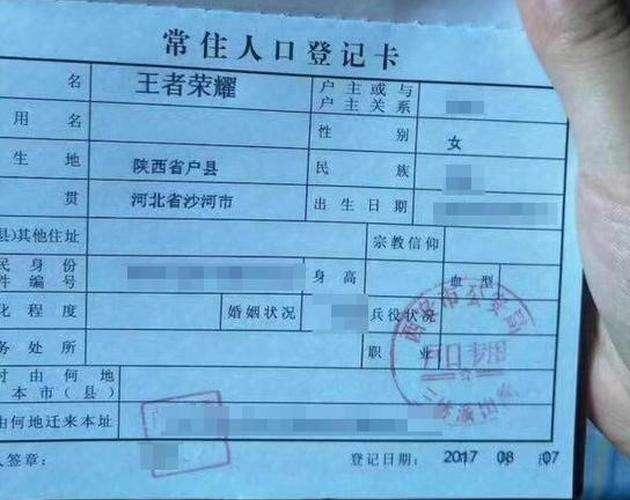 常住人口登记卡
名 王者荣耀 户主或与户主关系
用名 性别 女
生地 陕西省户县 民族
贯 河北省沙河市 出生日期
县)其他住址 宗教信仰
民身份 件编号 身高 血型
化程度 婚姻状况 兵役状况
务处所 职业
时由何地 本市(县)
由何地迁来本址
人签章: 登记日期: 2017 08 07
西安市公安局
户口专用